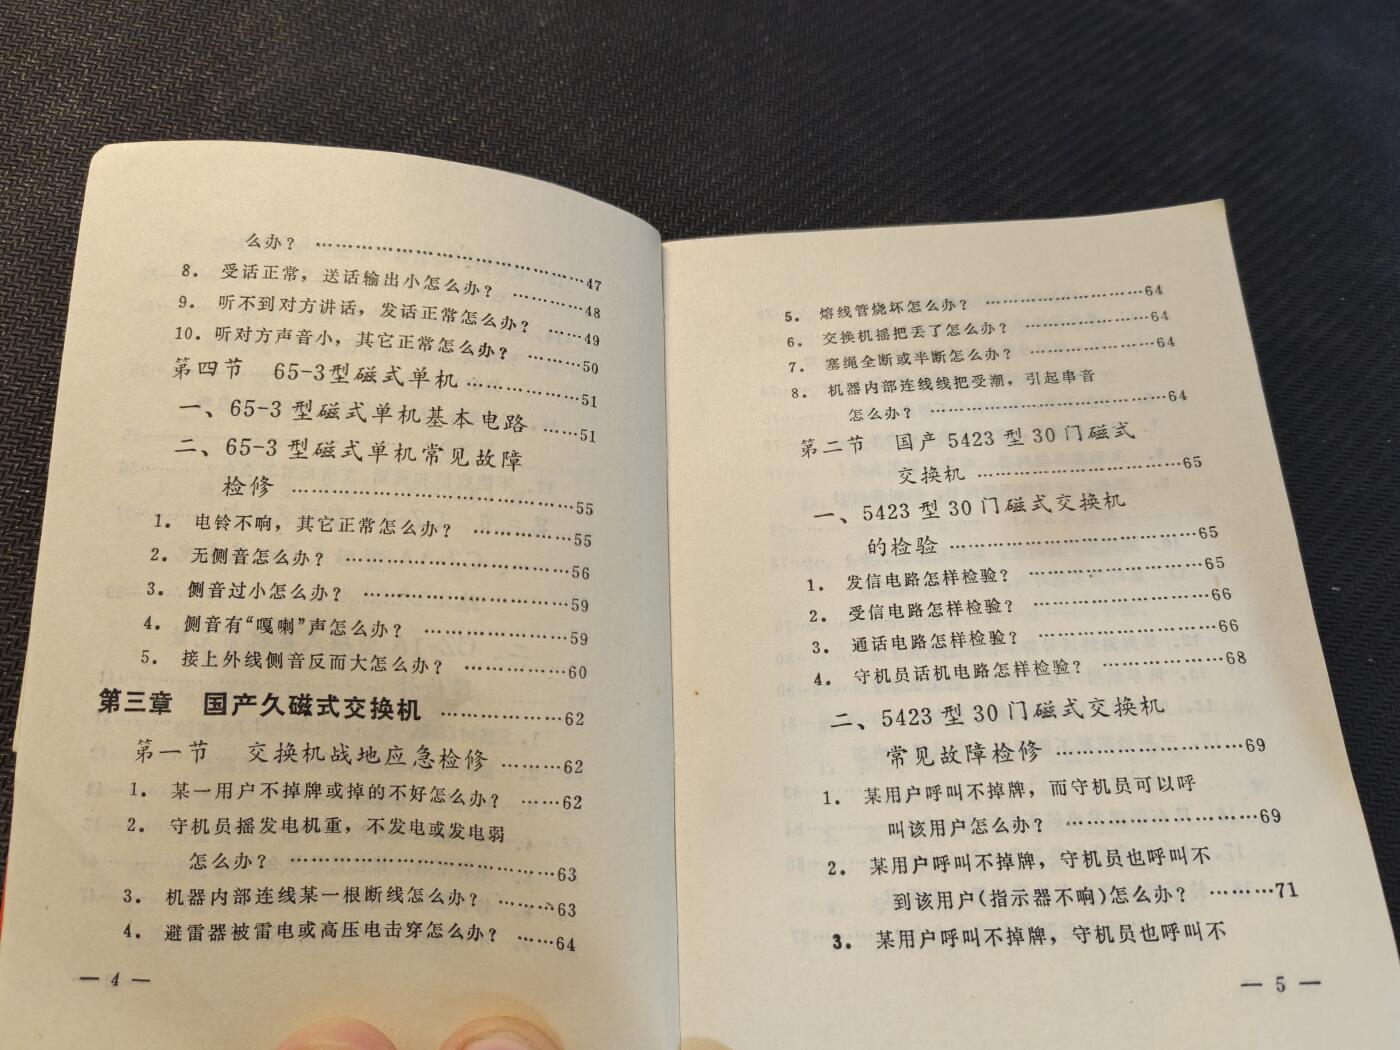 么办？ ……………………………………47
8. 受话正常，送话输出小怎么办？ …………48
9. 听不到对方讲话，发话正常怎么办？ ……49
10. 听对方声音小，其它正常怎么办？ ………50
第四节 65-3型磁式单机 ……………………51
一、65-3型磁式单机基本电路 ……51
二、65-3型磁式单机常见故障
检修 ……………………………………55
1. 电铃不响，其它正常怎么办？ ……………55
2. 无侧音怎么办？ ……………………………56
3. 侧音过小怎么办？ …………………………59
4. 侧音有“嘎喇”声怎么办？ …………………59
5. 接上外线侧音反而大怎么办？ ……………60
第三章 国产久磁式交换机 ………………62
第一节 交换机战地应急检修 ………62
1. 某一用户不掉牌或掉的不好怎么办？ ……62
2. 守机员摇发电机重，不发电或发电弱
怎么办？ ……………………………………63
3. 机器内部连线某一根断线怎么办？ ………63
4. 避雷器被雷电或高压电击穿怎么办？ ……64
— 4 —
5. 熔线管烧坏怎么办？ ……………………64
6. 交换机摇把丢了怎么办？ ………………64
7. 塞绳全断或半断怎么办？ ………………64
8. 机器内部连线线把受潮，引起串音
怎么办？ …………………………………64
第二节 国产5423型30门磁式
交换机 …………………………65
一、5423型30门磁式交换机
的检验 ………………………………65
1. 发信电路怎样检验？ ……………………65
2. 受信电路怎样检验？ ……………………66
3. 通话电路怎样检验？ ……………………66
4. 守机员话机电路怎样检验？ ……………68
二、5423型30门磁式交换机
常见故障检修 ……………………69
1. 某用户呼叫不掉牌，而守机员可以呼
叫该用户怎么办？ ………………………69
2. 某用户呼叫不掉牌，守机员也呼叫不
到该用户(指示器不响)怎么办？ ………71
3. 某用户呼叫不掉牌，守机员也呼叫不
— 5 —